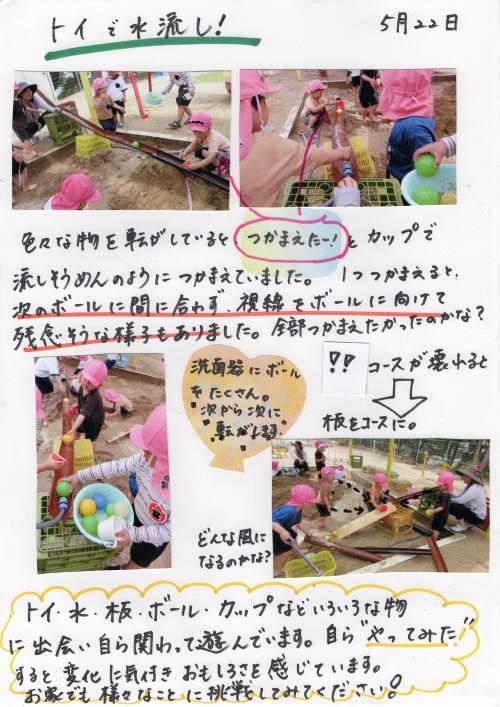 トイで水流し!
5月22日
色々な物を転がしていると、つかまえたー!とカップで
流しそうめんのようにつかまえていました。1つつかまえると、
次のボールに間に合わず、視線をボールに向けて
残念そうな様子もありました。全部つかまえたかったのかな?
洗面器にボール
をたくさん。
次から次に
転がしまーす
!!
コースが壊れると
板をコースに。
どんな風に
なるのかな?
トイ・水・板・ボール・カップなどいろいろな物
に出会い自ら関わって遊んでいます。自ら"やってみた!"
すると変化に気付きおもしろさを感じています。
お家でも様々なことに挑戦してみてください!